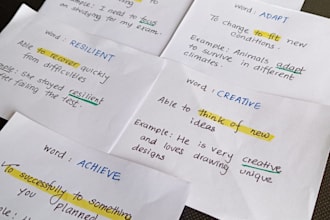 Example: I need to focus
on studying for my exam.
Word: ADAPT
To change to fit new
conditions.
Example: Animals adapt
to survive in different
climates.
Word: RESILIENT
Able to recover quickly
from difficulties
She stayed resilient
after failing the test.
Word: CREATIVE
Able to think of new
ideas
Example: He is very creative
and loves drawing unique
designs
Word: ACHIEVE
To successfully to something
you planned